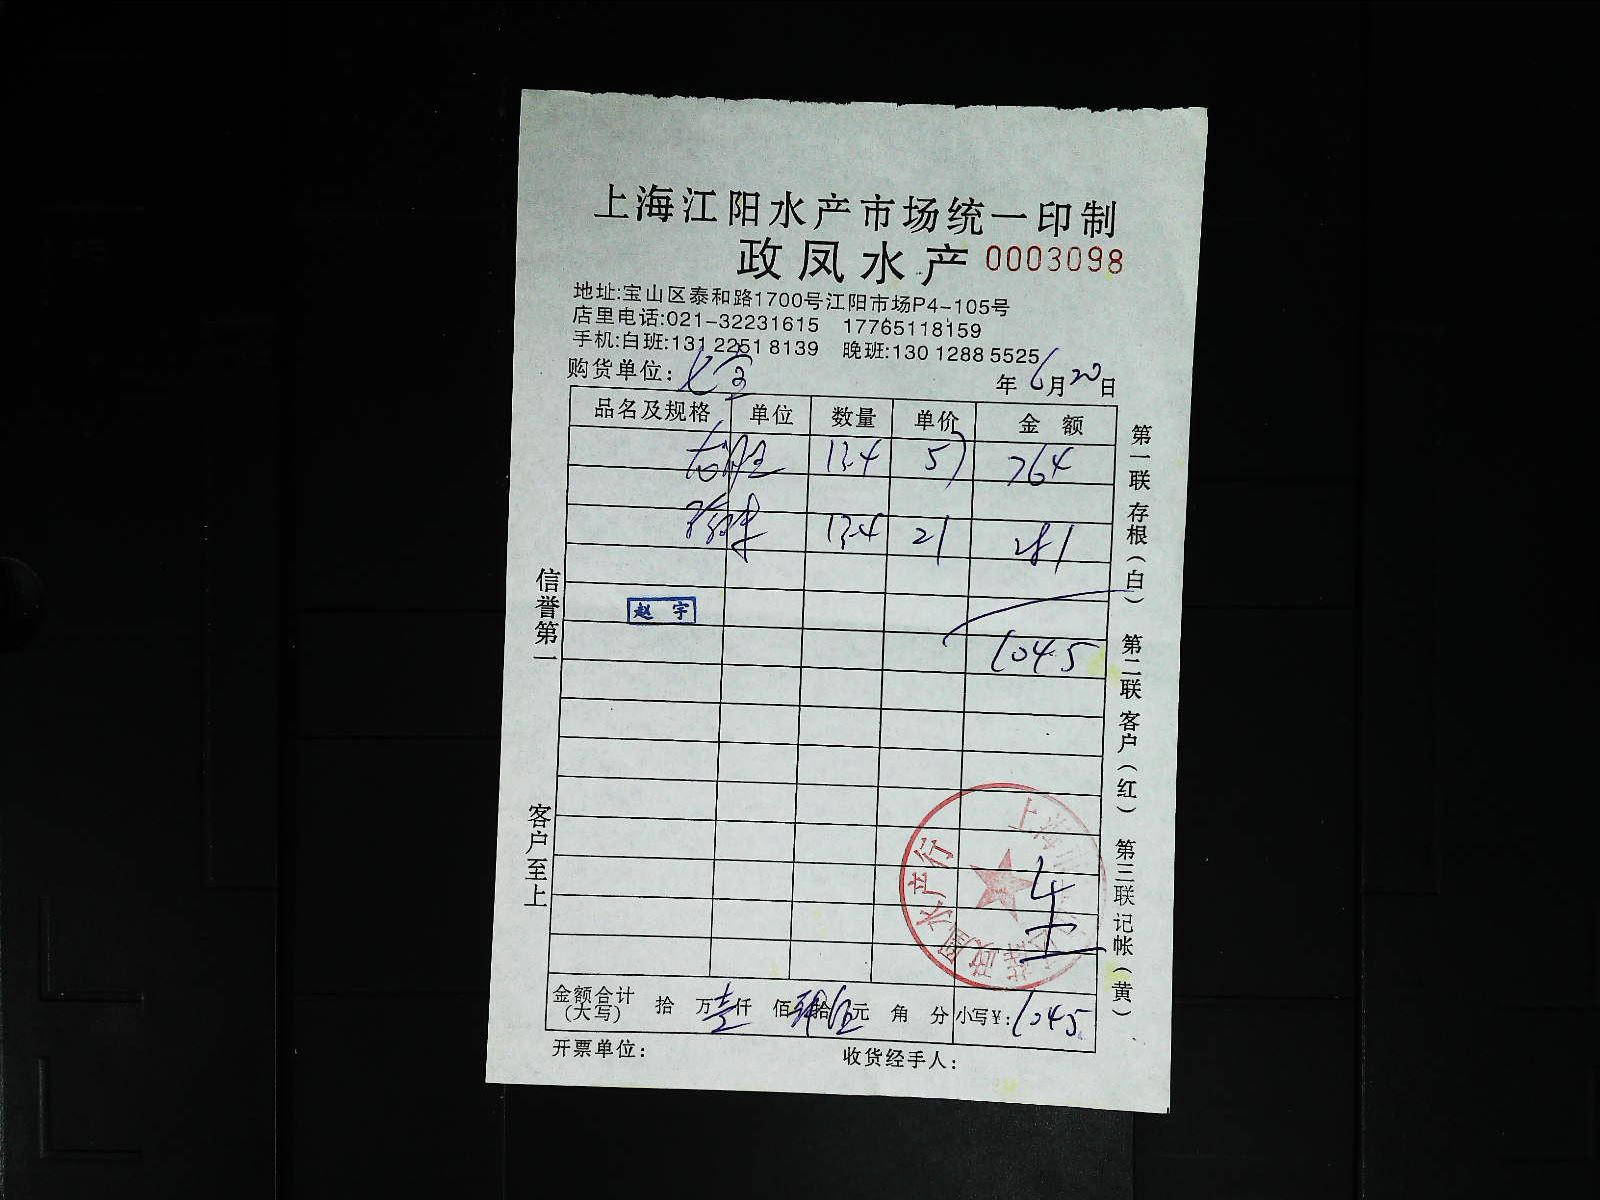 上海江阳水产市场统一印制
政凤水产 0003098
地址:宝山区泰和路1700号江阳市场P4-105号
店里电话:021-32231615 17765118159
手机:白班:131 2251 8139 晚班:130 1288 5525
购货单位: 年 6月20日
品名及规格 单位 数量 单价 金额
13.4 57 764
13.4 21 281
赵宇
1045
金额合计(大写) 拾 万壹仟 佰肆拾伍元 角 分 小写¥:1045
开票单位: 收货经手人:
信誉第一
客户至上
第一联 存根(白) 第二联 客户(红) 第三联 记帐(黄)